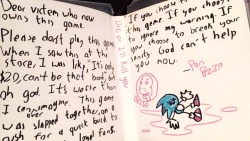 Dear victem who now
owns this game.
Please dont play this game
When I saw this at the
store, I was like, "It's only
$20, can't be that bad," but
oh god. It's worse than
I can imagine. This game
was slapped together, on a
rush for a quick buck to
fans.
If you choose t
this game. If you choose
to ignore my warning. If
you choose to break your
sanity. God can't help
you now.
-Pan
Pizza